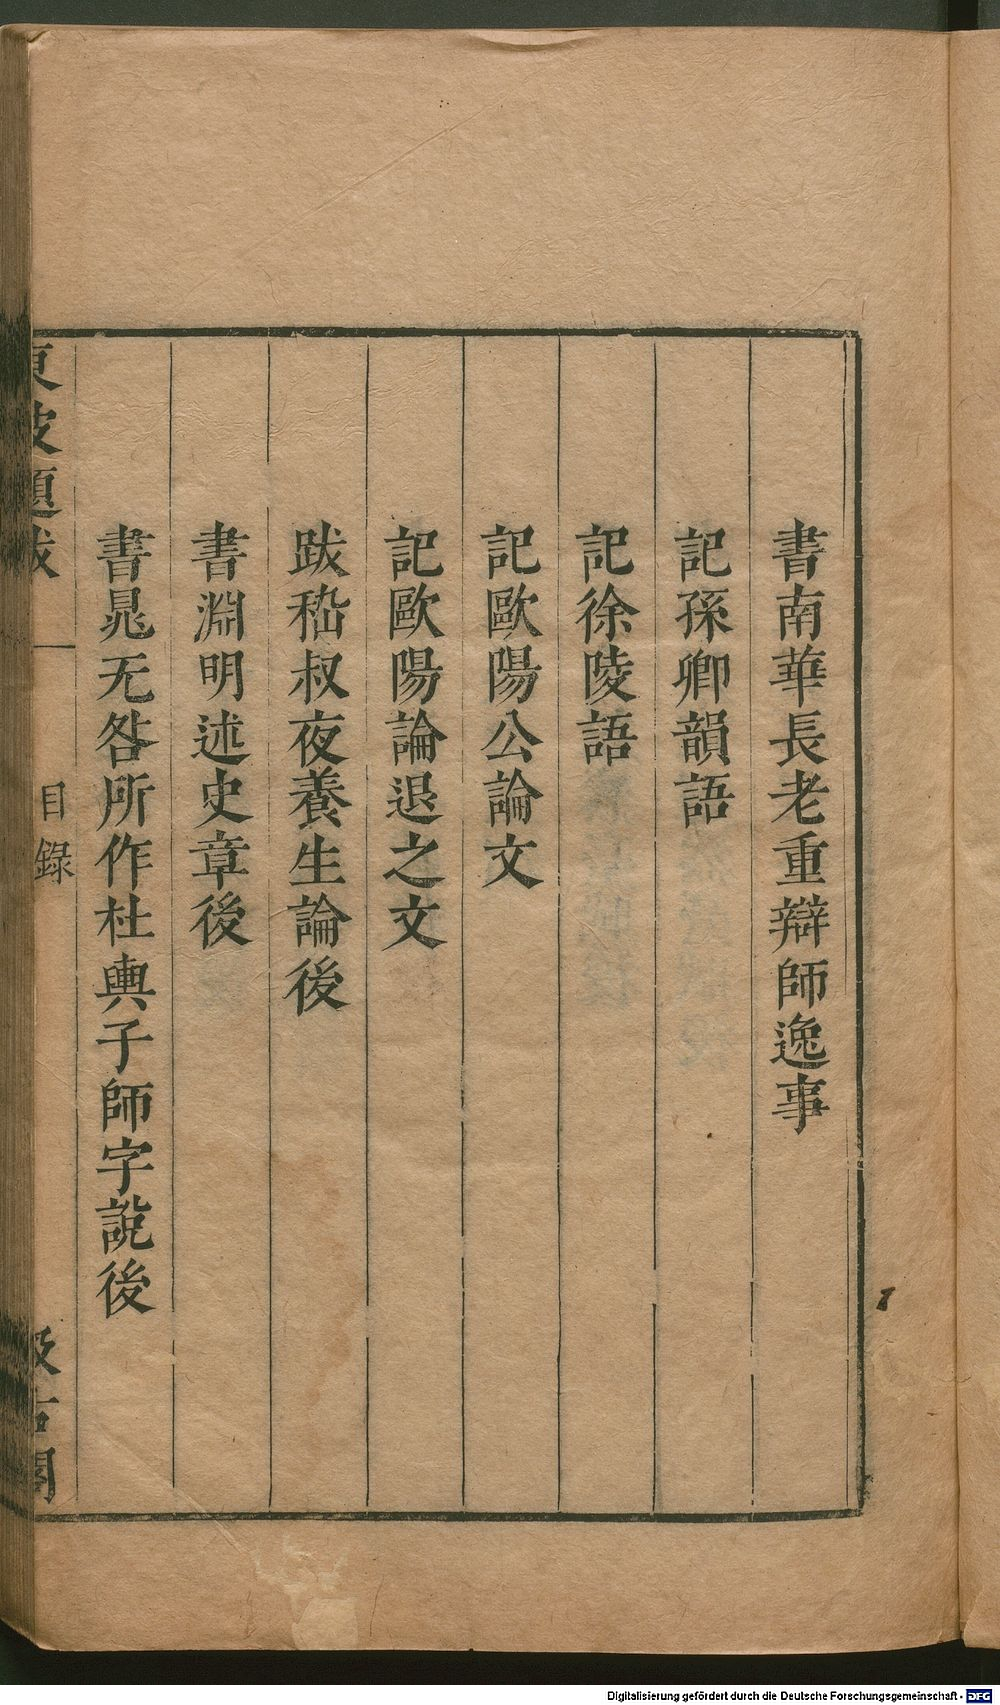 書南華長老重辯師逸事
記孫卿韻語
記徐陵語
記歐陽公論文
記歐陽論退之文
跋嵇叔夜養生論後
書淵明述史章後
書晁无咎所作杜輿子師字說後
東坡題跋
目錄
汲古閣
Digitalisierung gefördert durch die Deutsche Forschungsgemeinschaft - DFG